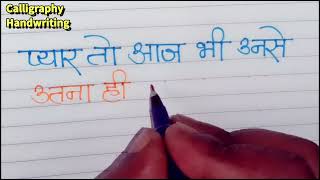 Calligraphy
Handwriting
प्यार तो आज भी उनसे
उतना ही